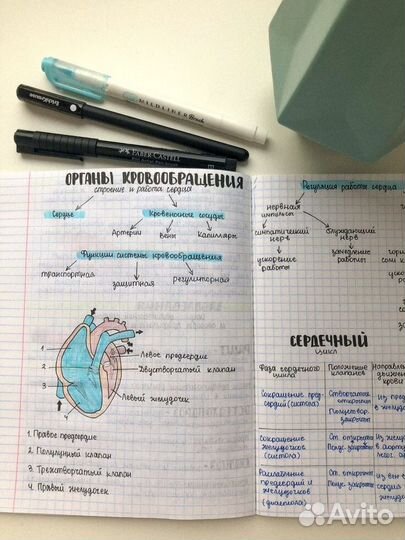 MILDLINER Brush
ErichKrause
FABER-CASTELL
ОРГАНЫ КРОВООБРАЩЕНИЯ
строение и работа сердца
Сердце
Кровеносные сосуды
Артерии
вены
капилляры
Функции системы кровообращения
транспортная
защитная
регуляторная
1
2
3
4
Левое предсердие
Двустворчатый клапан
Левый желудочек
1. Правое предсердие
2. Полулунный клапан
3. Трехстворчатый клапан
4. Правый желудочек
Регуляция работы сердца
нервная
импульсы
симпатический
нерв
ускорение
работы
блуждающий
нерв
замедление
работы
СЕРДЕЧНЫЙ
цикл
Фаза сердечного
цикла
Положение
клапанов
Направление
движения
крови
Сокращение пред-
сердий (систола)
Створчатые
открыты
Полулунные
закрыты
Из пред
Сокращение
желудочков
(систола)
Ст. открыты
Полул. закрыты
Из желуд
в аорту
Расслабление
предсердий и
желудочков
(диастола)
Ст. открыты
Полул. закрыты
Из вен в
Avito